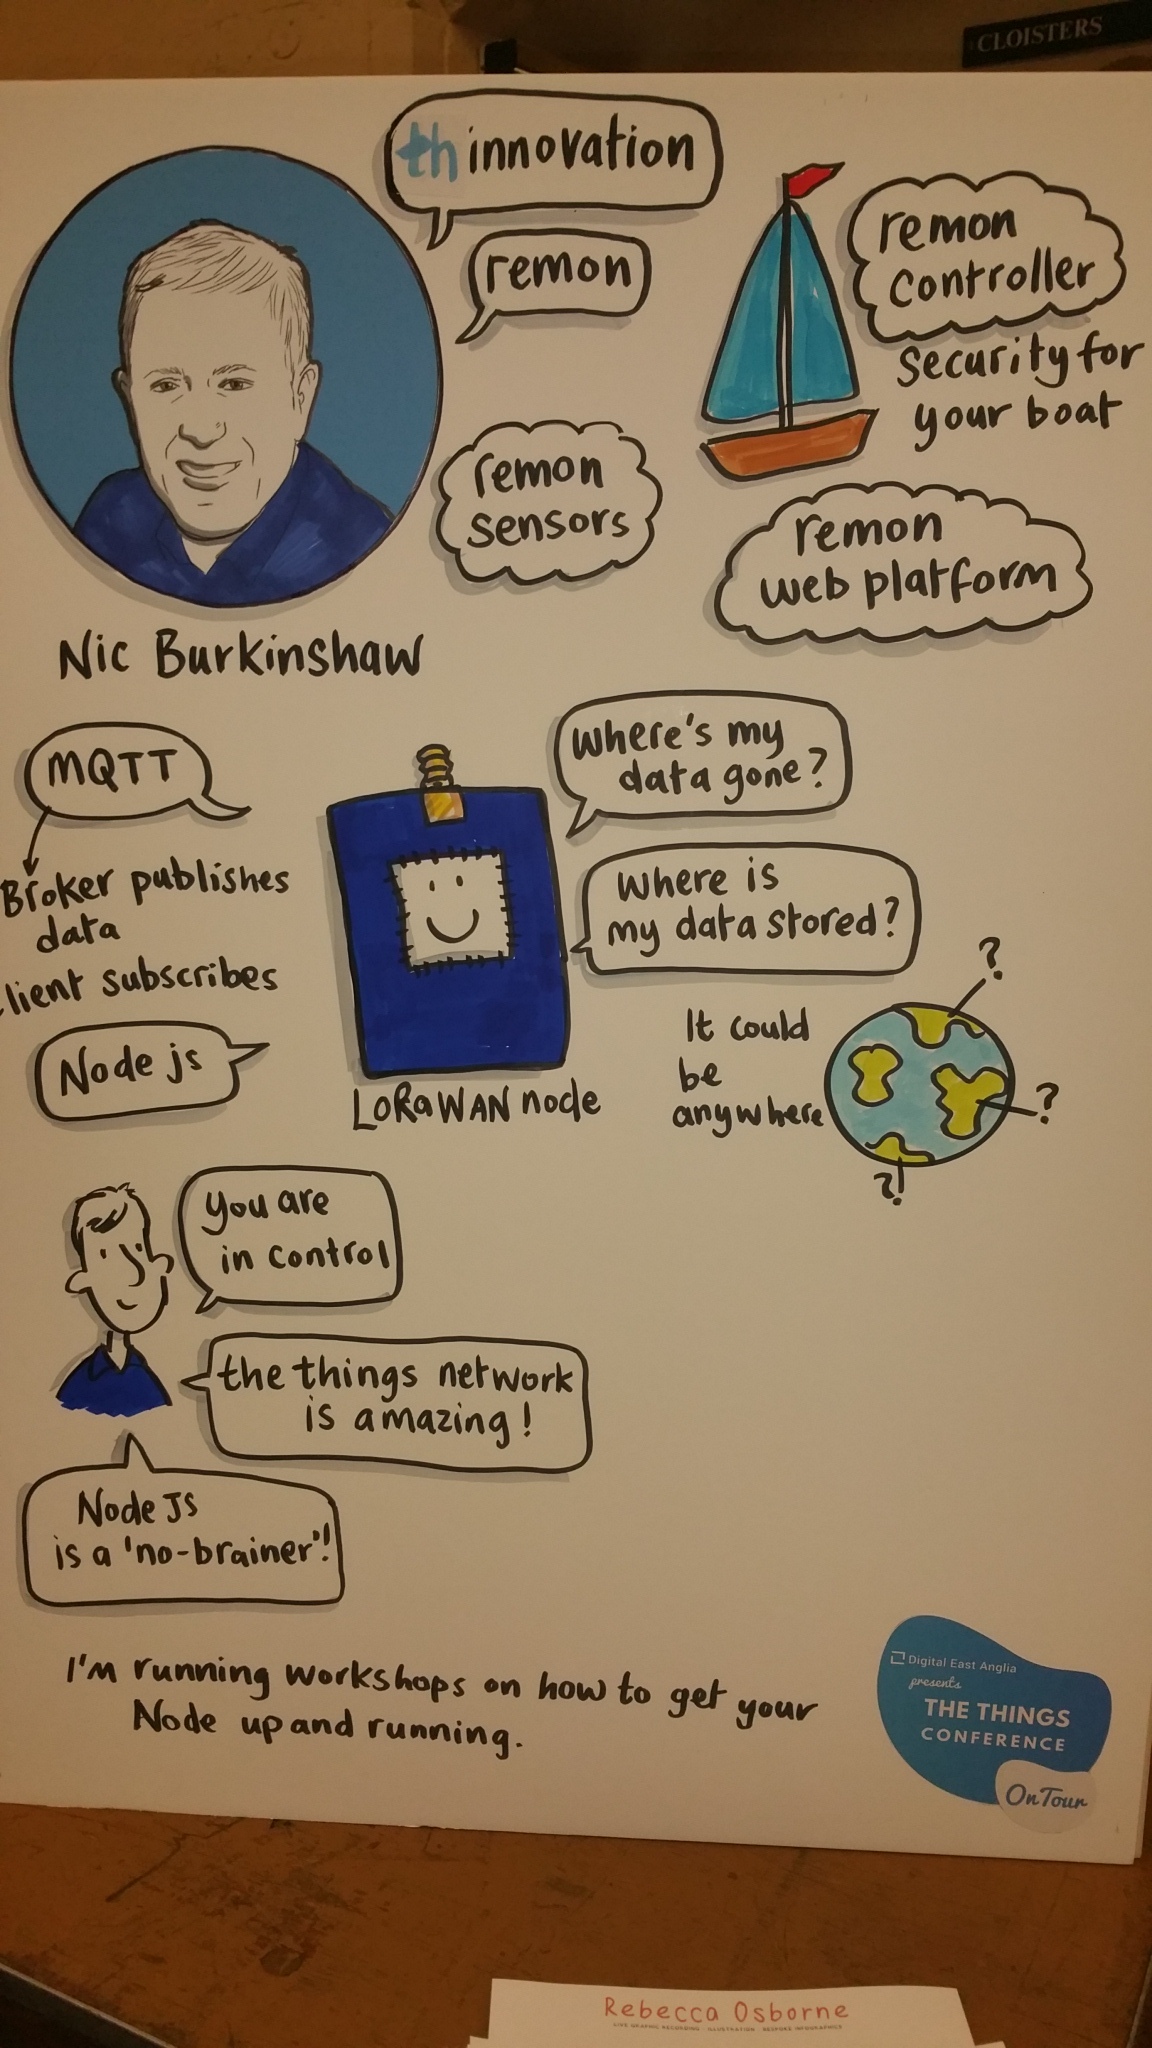 CLOISTERS
thinnovation
remon
remon
controller
Security for
your boat
remon
sensors
remon
web platform
Nic Burkinshaw
MQTT
Broker publishes
data
lient subscribes
Node js
where's my
data gone?
where is
my data stored?
LoRaWAN node
It could
be
anywhere
?
?
?!
you are
in control
the things network
is amazing!
Node JS
is a 'no-brainer'!
I'm running workshops on how to get your
Node up and running.
Digital East Anglia
presents
THE THINGS
CONFERENCE
On Tour
Rebecca Osborne
LIVE GRAPHIC RECORDING ILLUSTRATION BESPOKE INFOGRAPHICS